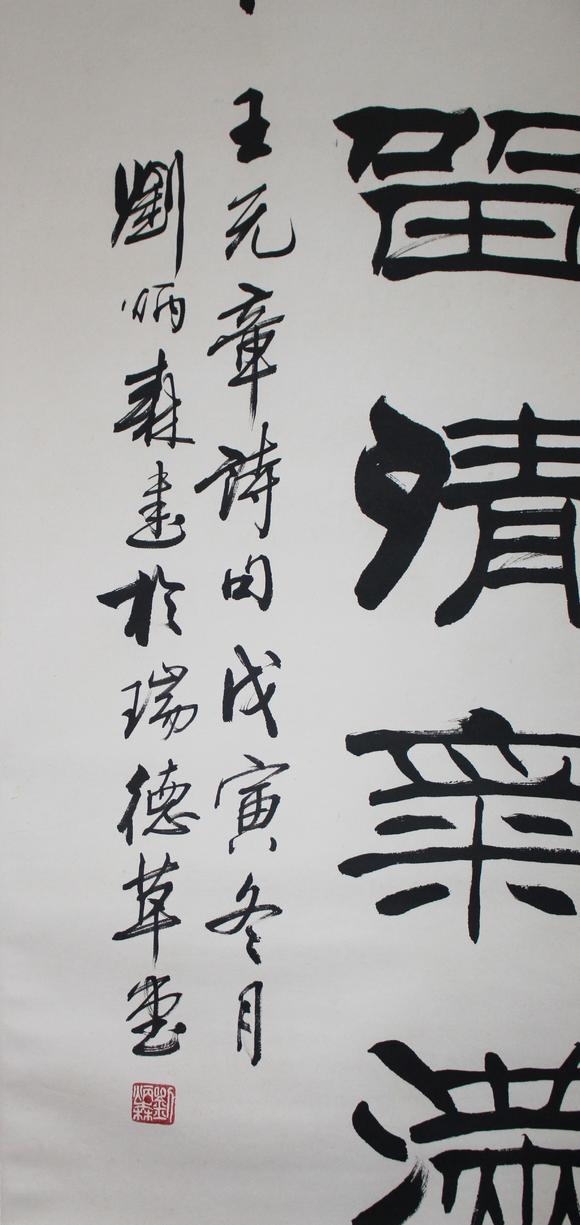 留清氣滿
王元章詩句戊寅冬月
劉炳森書於瑞德草堂
劉炳森